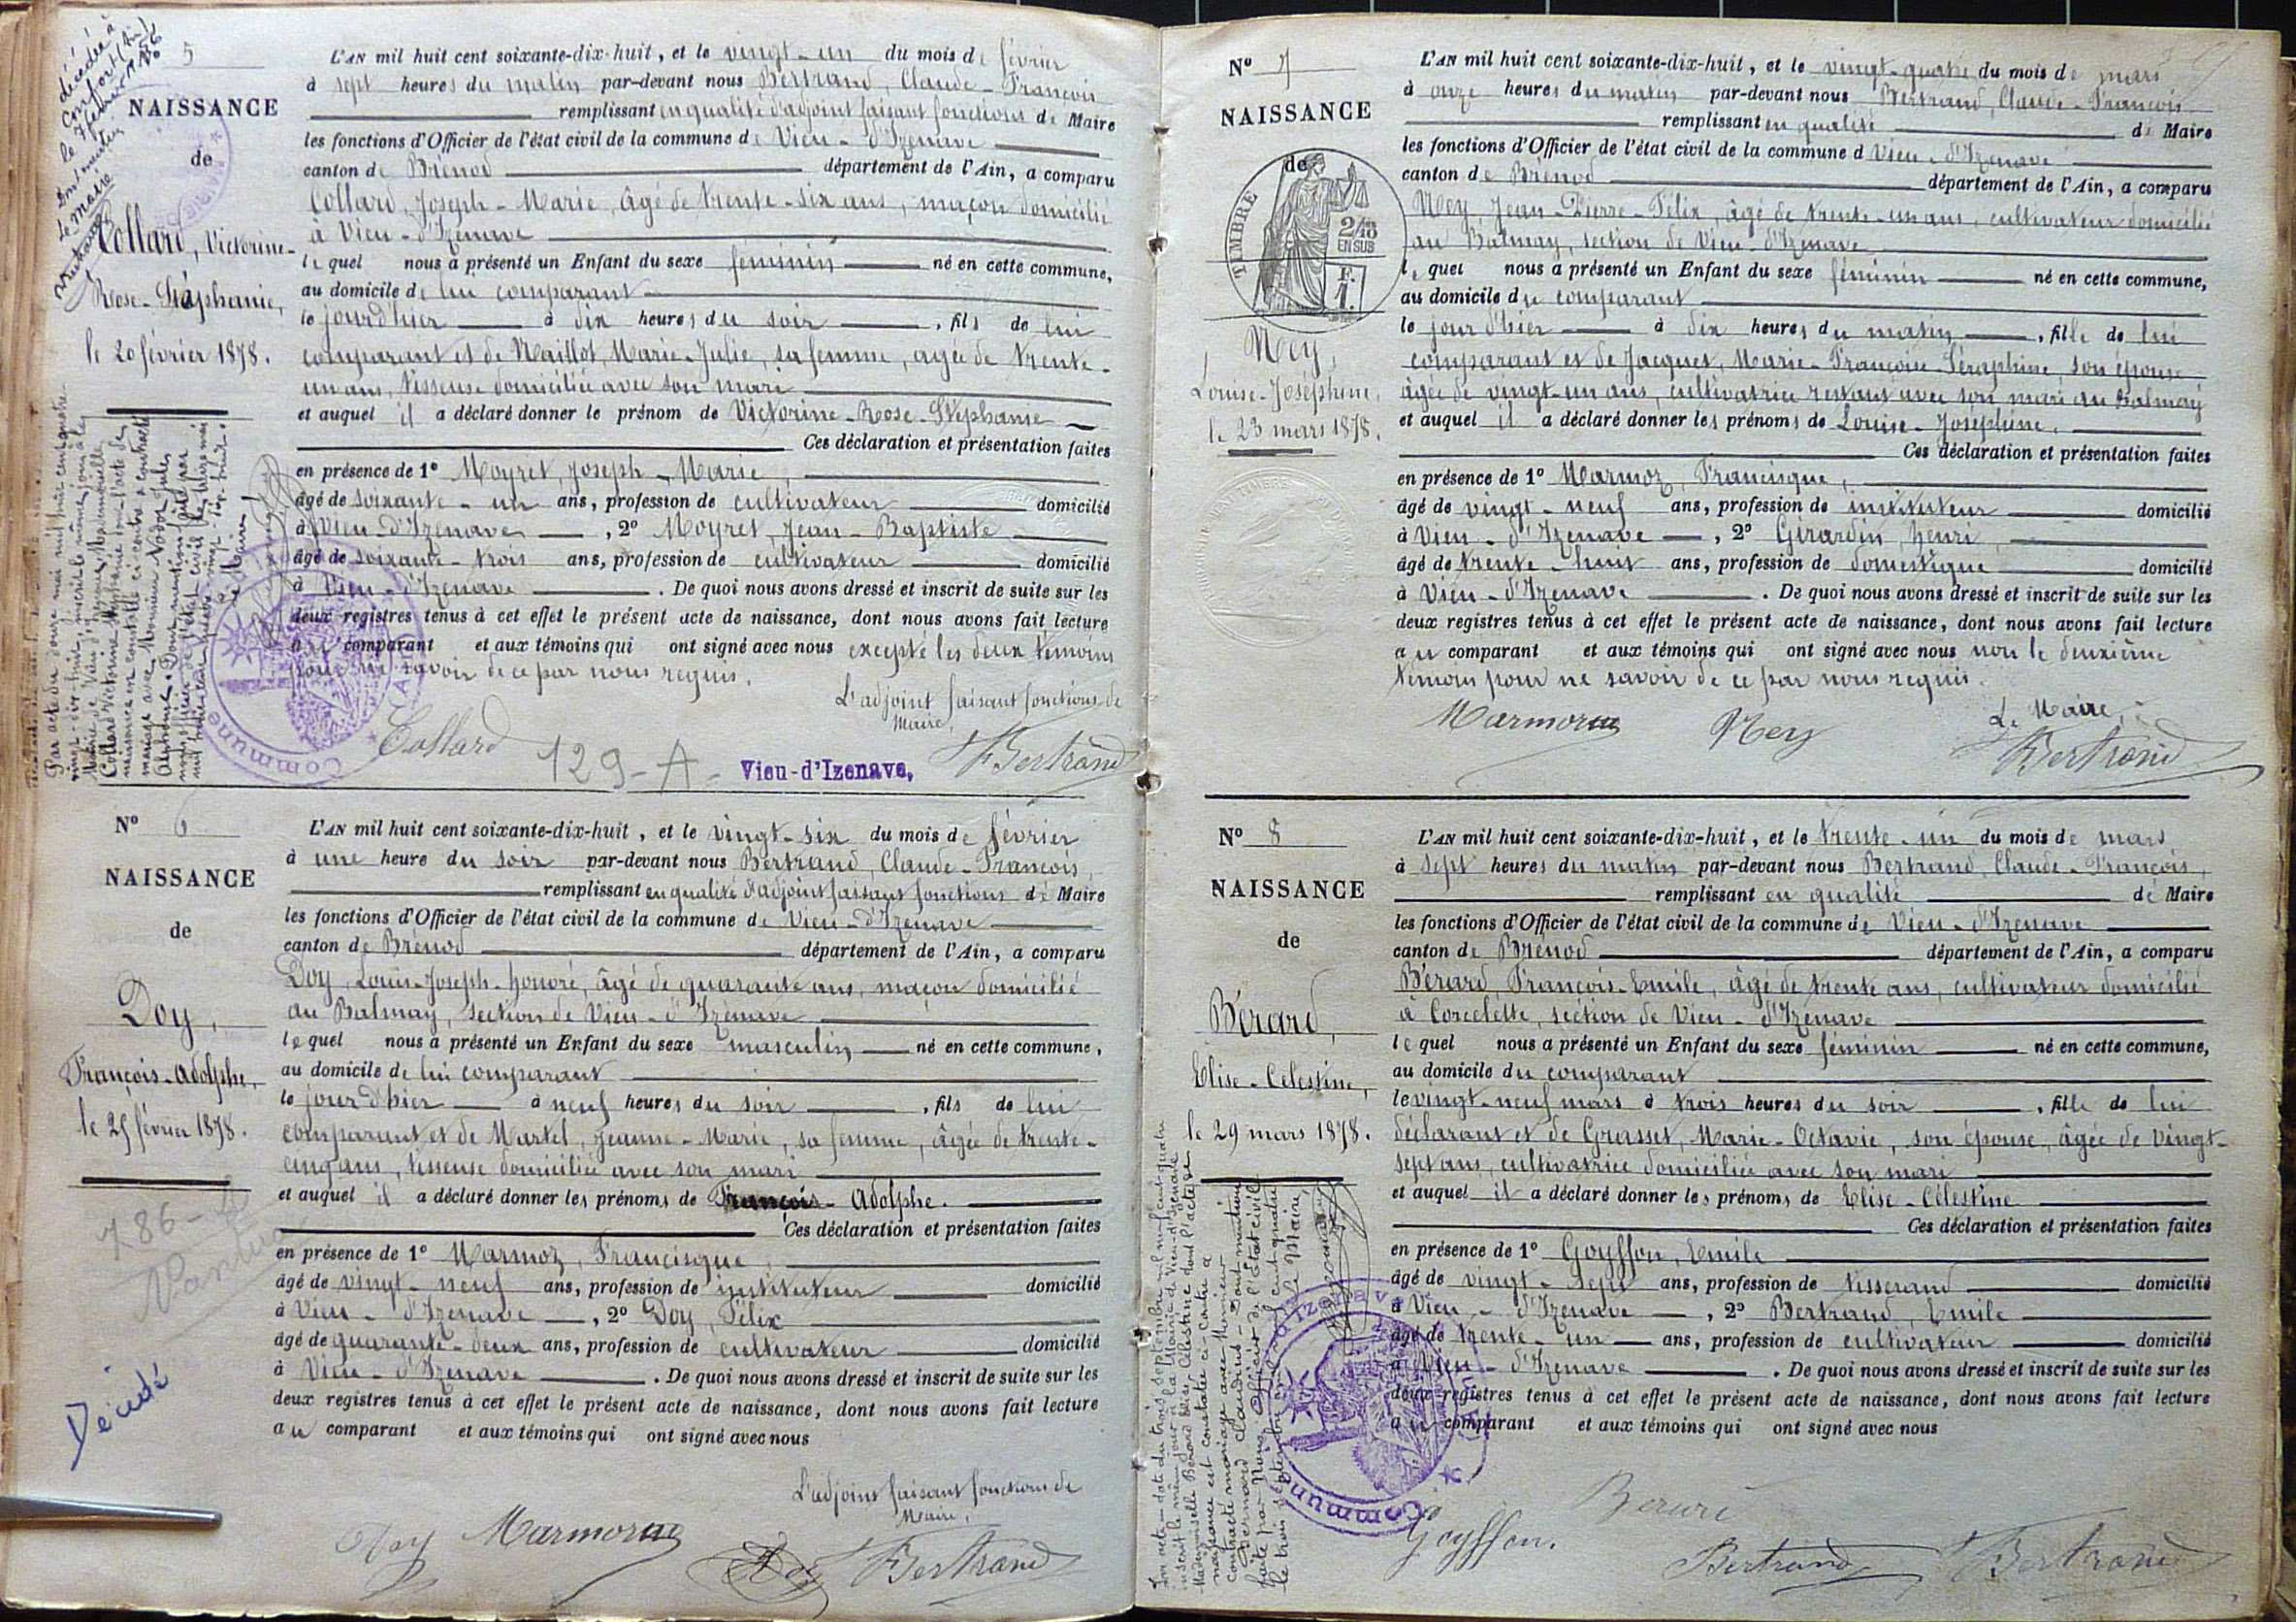 décédée à
Confort (Ain)
le
Dont mention
Le Maire
N° 5
NAISSANCE
de
Collard, Victorine-
Rose-Stéphanie,
le 20 février 1878.
L'AN mil huit cent soixante-dix-huit, et le vingt-un du mois de février
à sept heures du matin par-devant nous Bertrand, Claude-François
remplissant en qualité d'adjoint faisant fonctions de Maire
les fonctions d'Officier de l'état civil de la commune de Vieu-d'Izenave
canton de Brénod département de l'Ain, a comparu
Collard, Joseph-Marie, âgé de trente-six ans, maçon domicilié
à Vieu-d'Izenave
lequel nous a présenté un Enfant du sexe féminin né en cette commune,
au domicile de lui comparant
le jour d'hier à dix heures du soir, fils de lui
comparant et de Maillot, Marie-Julie, sa femme, agée de trente-
un ans, tisseuse domiciliée avec son mari
et auquel il a déclaré donner le prénom de Victorine-Rose-Stéphanie
Ces déclaration et présentation faites
en présence de 1° Moyret, Joseph-Marie,
âgé de soixante-un ans, profession de cultivateur domicilié
à Vieu-d'Izenave, 2° Moyret, Jean-Baptiste
âgé de soixante-trois ans, profession de cultivateur domicilié
à Vieu-d'Izenave. De quoi nous avons dressé et inscrit de suite sur les
deux registres tenus à cet effet le présent acte de naissance, dont nous avons fait lecture
au comparant et aux témoins qui ont signé avec nous excepté les deux témoins
pour ne savoir de ce par nous requis.
L'adjoint faisant fonctions de
Maire,
Collard
129-A-
Vieu-d'Izenave,
Bertrand
Par acte du douze mai mil huit cent quatre-
vingt-dix-huit, inscrit le même jour à la
Mairie de Vieu d'Izenave, Mademoiselle
Collard Victorine Stéphanie dont l'acte de
naissance est constaté ci-contre a contracté
mariage avec Monsieur Nodor Jules
Alphonse. Dont mention faite par
nous officier de l'état civil le treize mai
mil huit cent quatre-vingt-dix-huit.
Le Maire
Commune
N° 6
NAISSANCE
de
Doy,
François-Adolphe,
le 25 février 1878.
786-
Nantua
Décédé
L'AN mil huit cent soixante-dix-huit, et le vingt-six du mois de février
à une heure du soir par-devant nous Bertrand, Claude-François,
remplissant en qualité d'adjoint faisant fonctions de Maire
les fonctions d'Officier de l'état civil de la commune de Vieu-d'Izenave
canton de Brénod département de l'Ain, a comparu
Doy, Louis-Joseph-honoré, âgé de quarante ans, maçon domicilié
au Balmay, section de Vieu-d'Izenave
lequel nous a présenté un Enfant du sexe masculin né en cette commune,
au domicile de lui comparant
le jour d'hier à neuf heures du soir, fils de lui
comparant et de Martel, Jeanne-Marie, sa femme, âgée de trente-
cinq ans, tisseuse domiciliée avec son mari
et auquel il a déclaré donner les prénoms de François-Adolphe.
Ces déclaration et présentation faites
en présence de 1° Marmoz, Francisque,
âgé de vingt-neuf ans, profession de instituteur domicilié
à Vieu-d'Izenave, 2° Doy, Félix
âgé de quarante-deux ans, profession de cultivateur domicilié
à Vieu-d'Izenave. De quoi nous avons dressé et inscrit de suite sur les
deux registres tenus à cet effet le présent acte de naissance, dont nous avons fait lecture
au comparant et aux témoins qui ont signé avec nous
L'adjoint faisant fonctions de
Maire,
Doy Marmoz Doy Bertrand
N° 7
NAISSANCE
de
TIMBRE
2/10
EN SUS
Ney,
Louise-Joséphine,
le 23 mars 1878.
L'AN mil huit cent soixante-dix-huit, et le vingt-quatre du mois de mars
à onze heures du matin par-devant nous Bertrand, Claude-François
remplissant en qualité de Maire
les fonctions d'Officier de l'état civil de la commune d Vieu-d'Izenave
canton de Brénod département de l'Ain, a comparu
Ney, Jean-Pierre-Félix, âgé de trente-un ans, cultivateur domicilié
au Balmay, section de Vieu-d'Izenave
lequel nous a présenté un Enfant du sexe féminin né en cette commune,
au domicile du comparant
le jour d'hier à dix heures du matin, fille de lui
comparant et de Jacquet, Marie-Françoise-Séraphine son épouse,
âgée de vingt-un ans, cultivatrice restant avec son mari au Balmay
et auquel il a déclaré donner les prénoms de Louise-Joséphine,
Ces déclaration et présentation faites
en présence de 1° Marmoz, Francisque,
âgé de vingt-neuf ans, profession de instituteur domicilié
à Vieu-d'Izenave, 2° Girardin, henri,
âgé de trente-huit ans, profession de domestique domicilié
à Vieu-d'Izenave. De quoi nous avons dressé et inscrit de suite sur les
deux registres tenus à cet effet le présent acte de naissance, dont nous avons fait lecture
au comparant et aux témoins qui ont signé avec nous non le deuxième
témoin pour ne savoir de ce par nous requis.
Le Maire,
Marmoz Ney Bertrand
N° 8
NAISSANCE
de
Bérard,
Elise-Celestine,
le 29 mars 1878.
L'AN mil huit cent soixante-dix-huit, et le trente-un du mois de mars
à sept heures du matin par-devant nous Bertrand, Claude-François,
remplissant en qualité de Maire
les fonctions d'Officier de l'état civil de la commune de Vieu-d'Izenave
canton de Brénod département de l'Ain, a comparu
Bérard, François-Emile, âgé de trente ans, cultivateur domicilié
à Corcelette, section de Vieu-d'Izenave
lequel nous a présenté un Enfant du sexe féminin né en cette commune,
au domicile du comparant
le vingt-neuf mars à trois heures du soir, fille de lui
déclarant et de Grasset, Marie-Octavie, son épouse, âgée de vingt-
sept ans, cultivatrice domiciliée avec son mari
et auquel il a déclaré donner les prénoms de Elise-Célestine
Ces déclaration et présentation faites
en présence de 1° Goyffon, Emile
âgé de vingt-sept ans, profession de tisserand domicilié
à Vieu-d'Izenave, 2° Bertrand, Emile
âgé de trente-un ans, profession de cultivateur domicilié
à Vieu-d'Izenave. De quoi nous avons dressé et inscrit de suite sur les
deux registres tenus à cet effet le présent acte de naissance, dont nous avons fait lecture
au comparant et aux témoins qui ont signé avec nous
Goyffon. Berard Bertrand Bertrand
acte en date du trois septembre mil neuf cent quatre
inscrit le même jour à la Mairie de Vieu-d'Izenave
Mademoiselle Bérard Elise, Célestine dont l'acte de
naissance est constaté ci-contre a
contracté mariage avec Monsieur
Bernard Claudius. Dont mention
faite par Nous, Officier de l'état civil
le trois septembre mil neuf cent quatre
Le Maire,
Commune